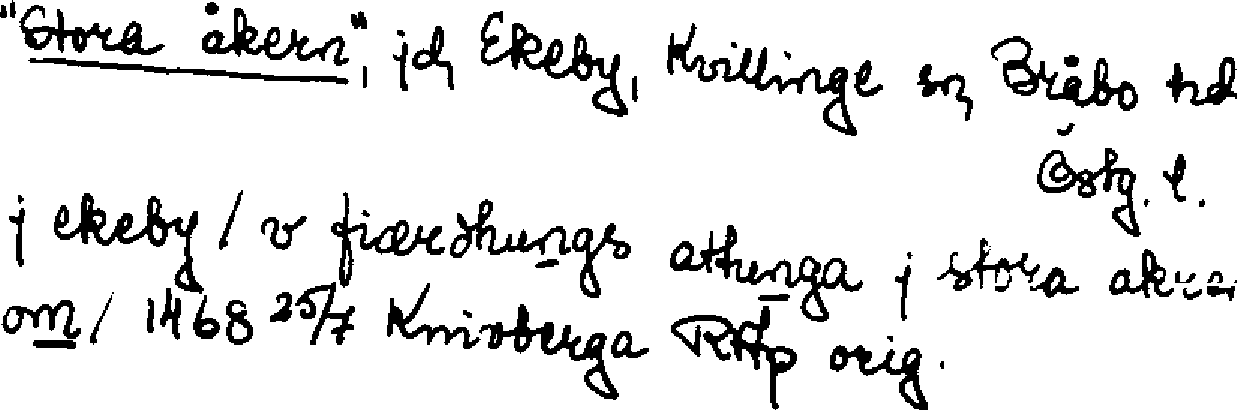 "Stora åkern", jd, Ekeby, Kvillinge sn, Bråbo hd
Östg. l.
j ekeby / v fiærdhungs attunga j stora akra
om / 1468 25/7 Knivberga RAp orig.